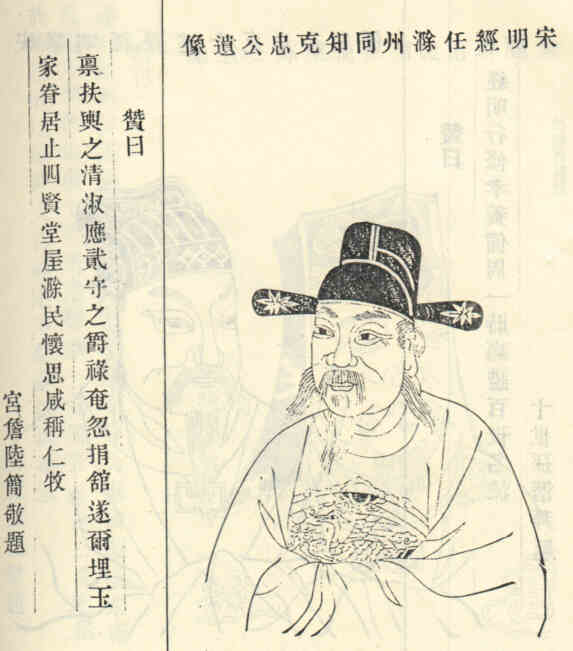 宋明經任滁州同知克忠公遺像
贊曰
稟扶輿之清淑應貳守之爵祿奄忽捐舘遂爾埋玉
家眷居止四賢堂屋滁民懷思咸稱仁牧
宮詹陸簡敬題